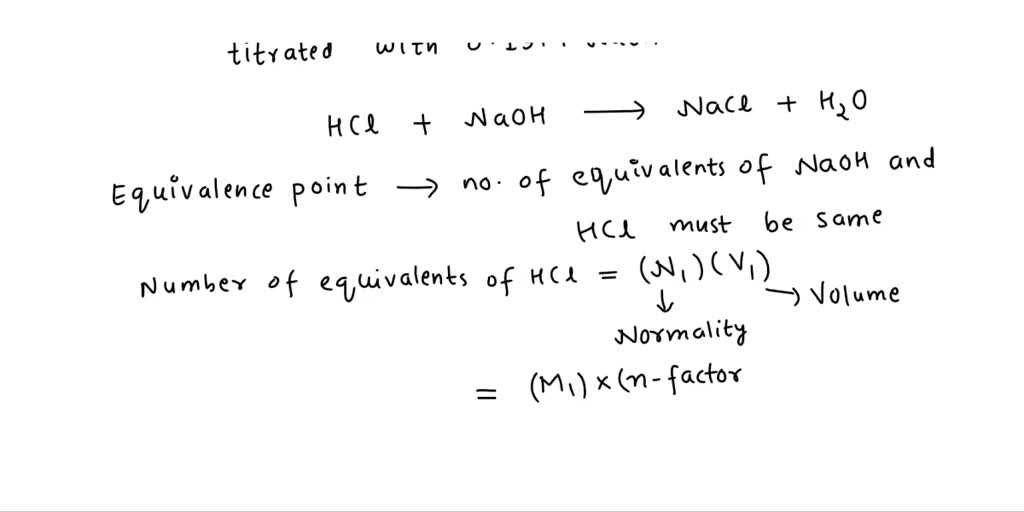 titrated with
HCl + NaOH ⟶ NaCl + H₂O
Equivalence point → no. of equivalents of NaOH and
HCl must be same
Number of equivalents of HCl = (N₁)(V₁)
↓ → Volume
Normality
= (M₁) × (n-factor